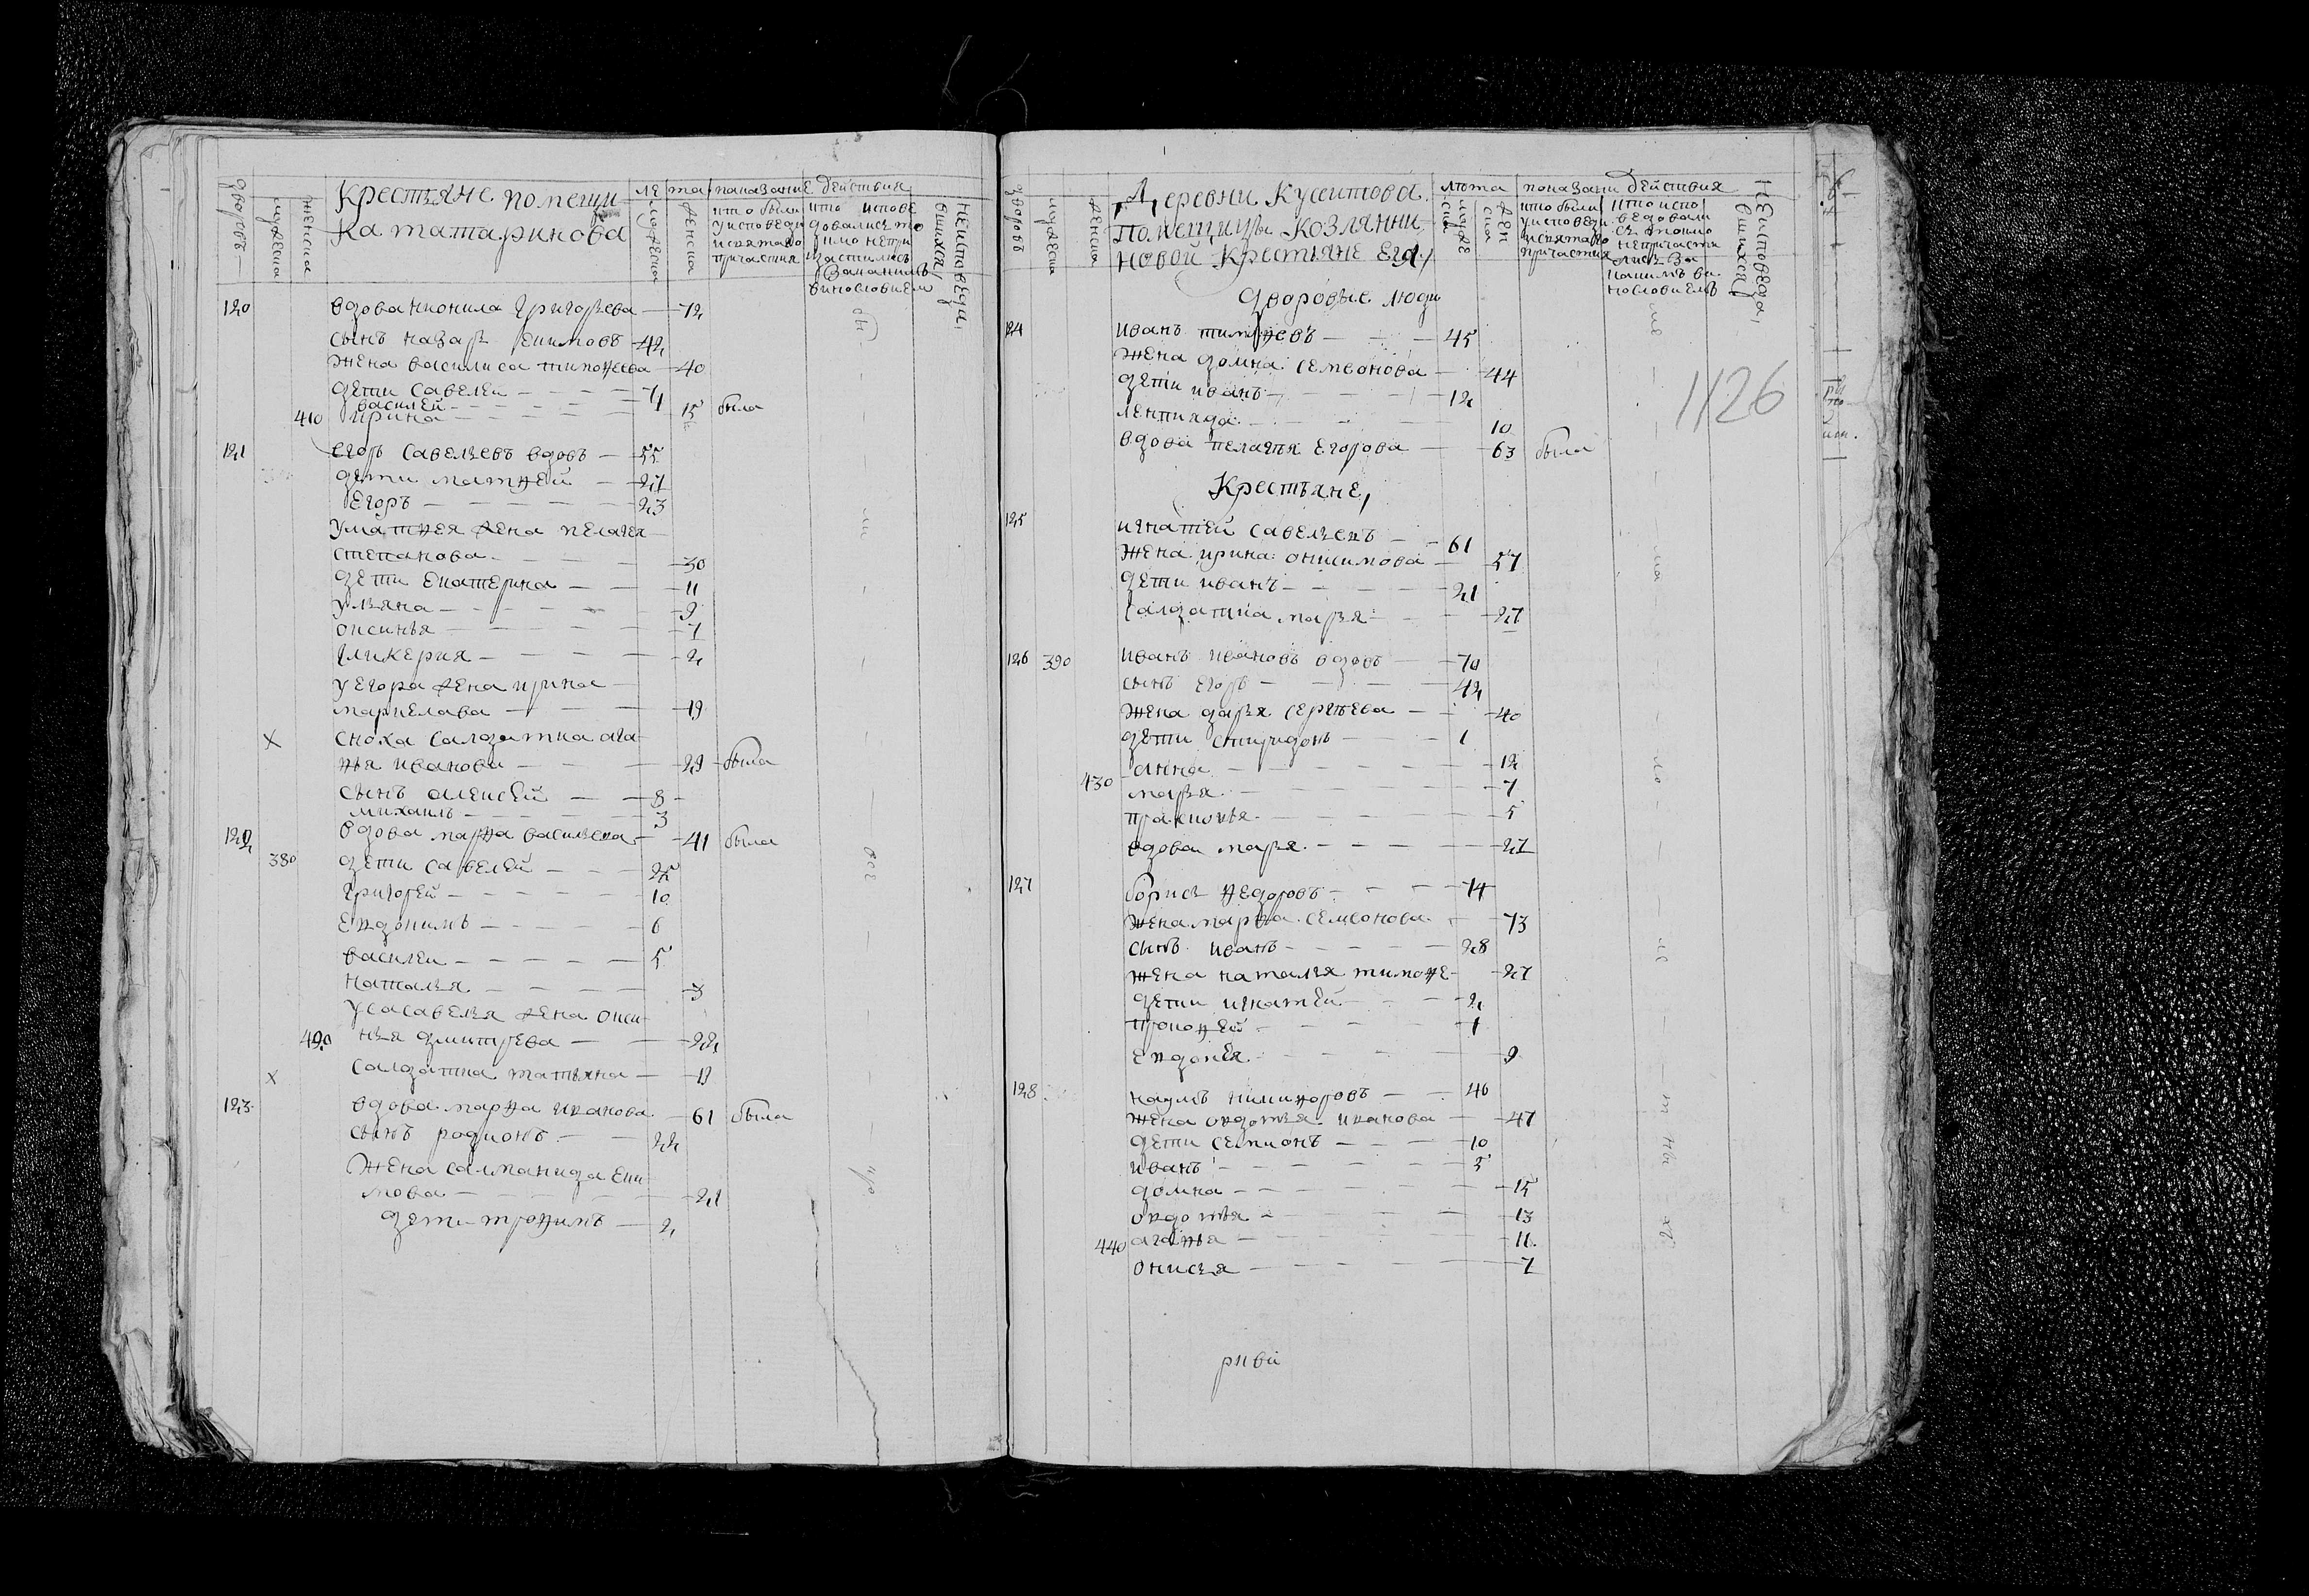 дворовъ
мужеска
женска
Крестьяне помещи
ка татаринова
лета
мужеска
женска
показание действия
кто были
у исповеди
и святаго
причастия
кто испове
довались то
лико непри
частились
за каким
винословием
неисповеда
вшихся
120 вдова неонила Григорьева — 72
сынъ назаръ екимовъ 42
жена василиса тимофеева 40
дети савелей — 7
василей — 4
410 ирина — 15 была
121 егоръ савельевъ вдовъ — 55
дети матфей — 27
Егоръ — 23
у матфея жена пелагея
степанова — 30
дети екатерина — 11
ульяна — 9
оксинья — 7
гликерия — 2
у егора жена ирина
маркелава — 19
х сноха салдатка ага
фья иванова — 29 была
сынъ алексей — 8
михаилъ — 3
122 вдова марфа васильева — 41 была
380 дети савелей — 25
григорей — 10
евдокимъ — 6
василеи — 5
наталья — 3
у савелья жена окси
420 нья дмитрева — 22
х салдатка татьяна — 19
123 вдова марфа иванова — 61 была
сынъ родионъ — 22
жена саламанида еки
мова — 21
дети трофимъ — 2
дворовъ
мужеска
женска
Деревни Кусептова
помещицы козлянни
новой Крестьяне Ея
лета
мужеска
женска
показани действия
кто были
у исповеди
и святаго
причастия
кто испо
ведовали
сь толико
непричасти
лись за
каким ви
нословиемъ
неисповеда
вшихся
Дворовые люди
124 иванъ тимофеевъ — 45
жена домна семионова — 44
дети иванъ — 12
10
вдова пелагея егорова — 63 была
1126
Крестьяне
125 игнатей савельевъ — 61
жена ирина онисимова — 57
дети иванъ — 21
салдатка марья — 27
126 390 иванъ ивановъ вдовъ — 70
сынъ егоръ — 42
жена дарья сергеева — 40
дети спиридонъ — 1
анна — 12
430 марья — 7
прасковья — 5
вдова марья — 27
127 борисъ федоровъ — 74
жена марфа семионова — 73
сынъ иванъ — 28
жена наталья тимофе — 27
дети игнатей — 2
прокофей — 1
евдокея — 9
128 наумъ никифоровъ — 46
жена овдотья иванова — 47
дети семионъ — 10
иванъ — 5
домна — 15
овдотья — 13
440 агафья — 11
онисья — 7